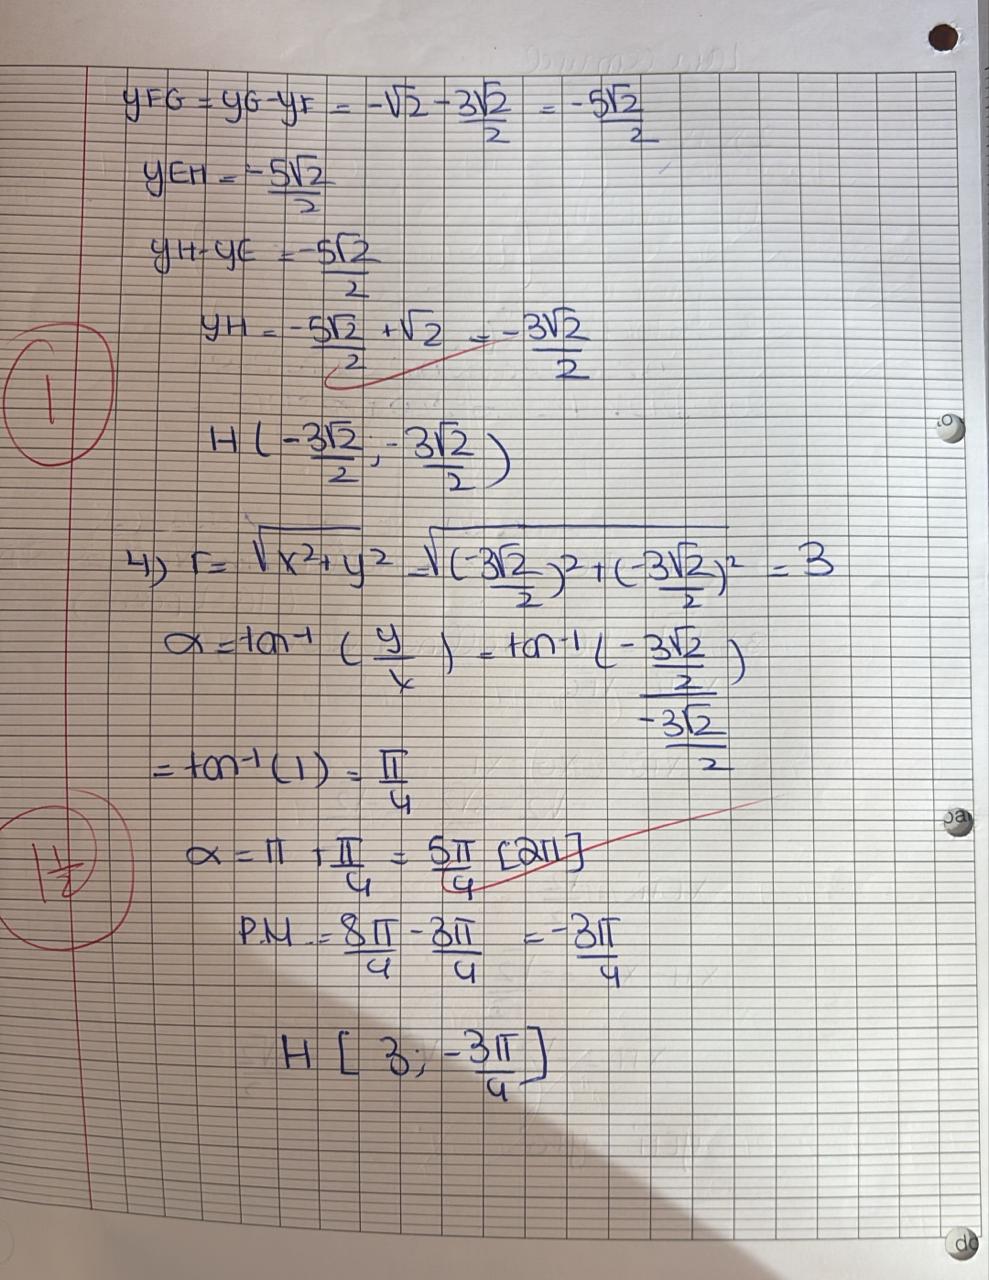 yFG = yG-yF = -√2 - 3√2/2 = -5√2/2
yEH = -5√2/2
yH-yE = -5√2/2
yH = -5√2/2 + √2 = -3√2/2
1
H (-3√2/2 ; -3√2/2)
4) r = √x²+y² = √(-3√2/2)²+(-3√2/2)² = 3
α = tan⁻¹ (y/x) = tan⁻¹ (-3√2/2 / -3√2/2)
= tan⁻¹(1) = π/4
1 1/2
α = π + π/4 = 5π/4 [2π]
P.M = 8π/4 - 3π/4 = -3π/4
H [ 3; -3π/4 ]